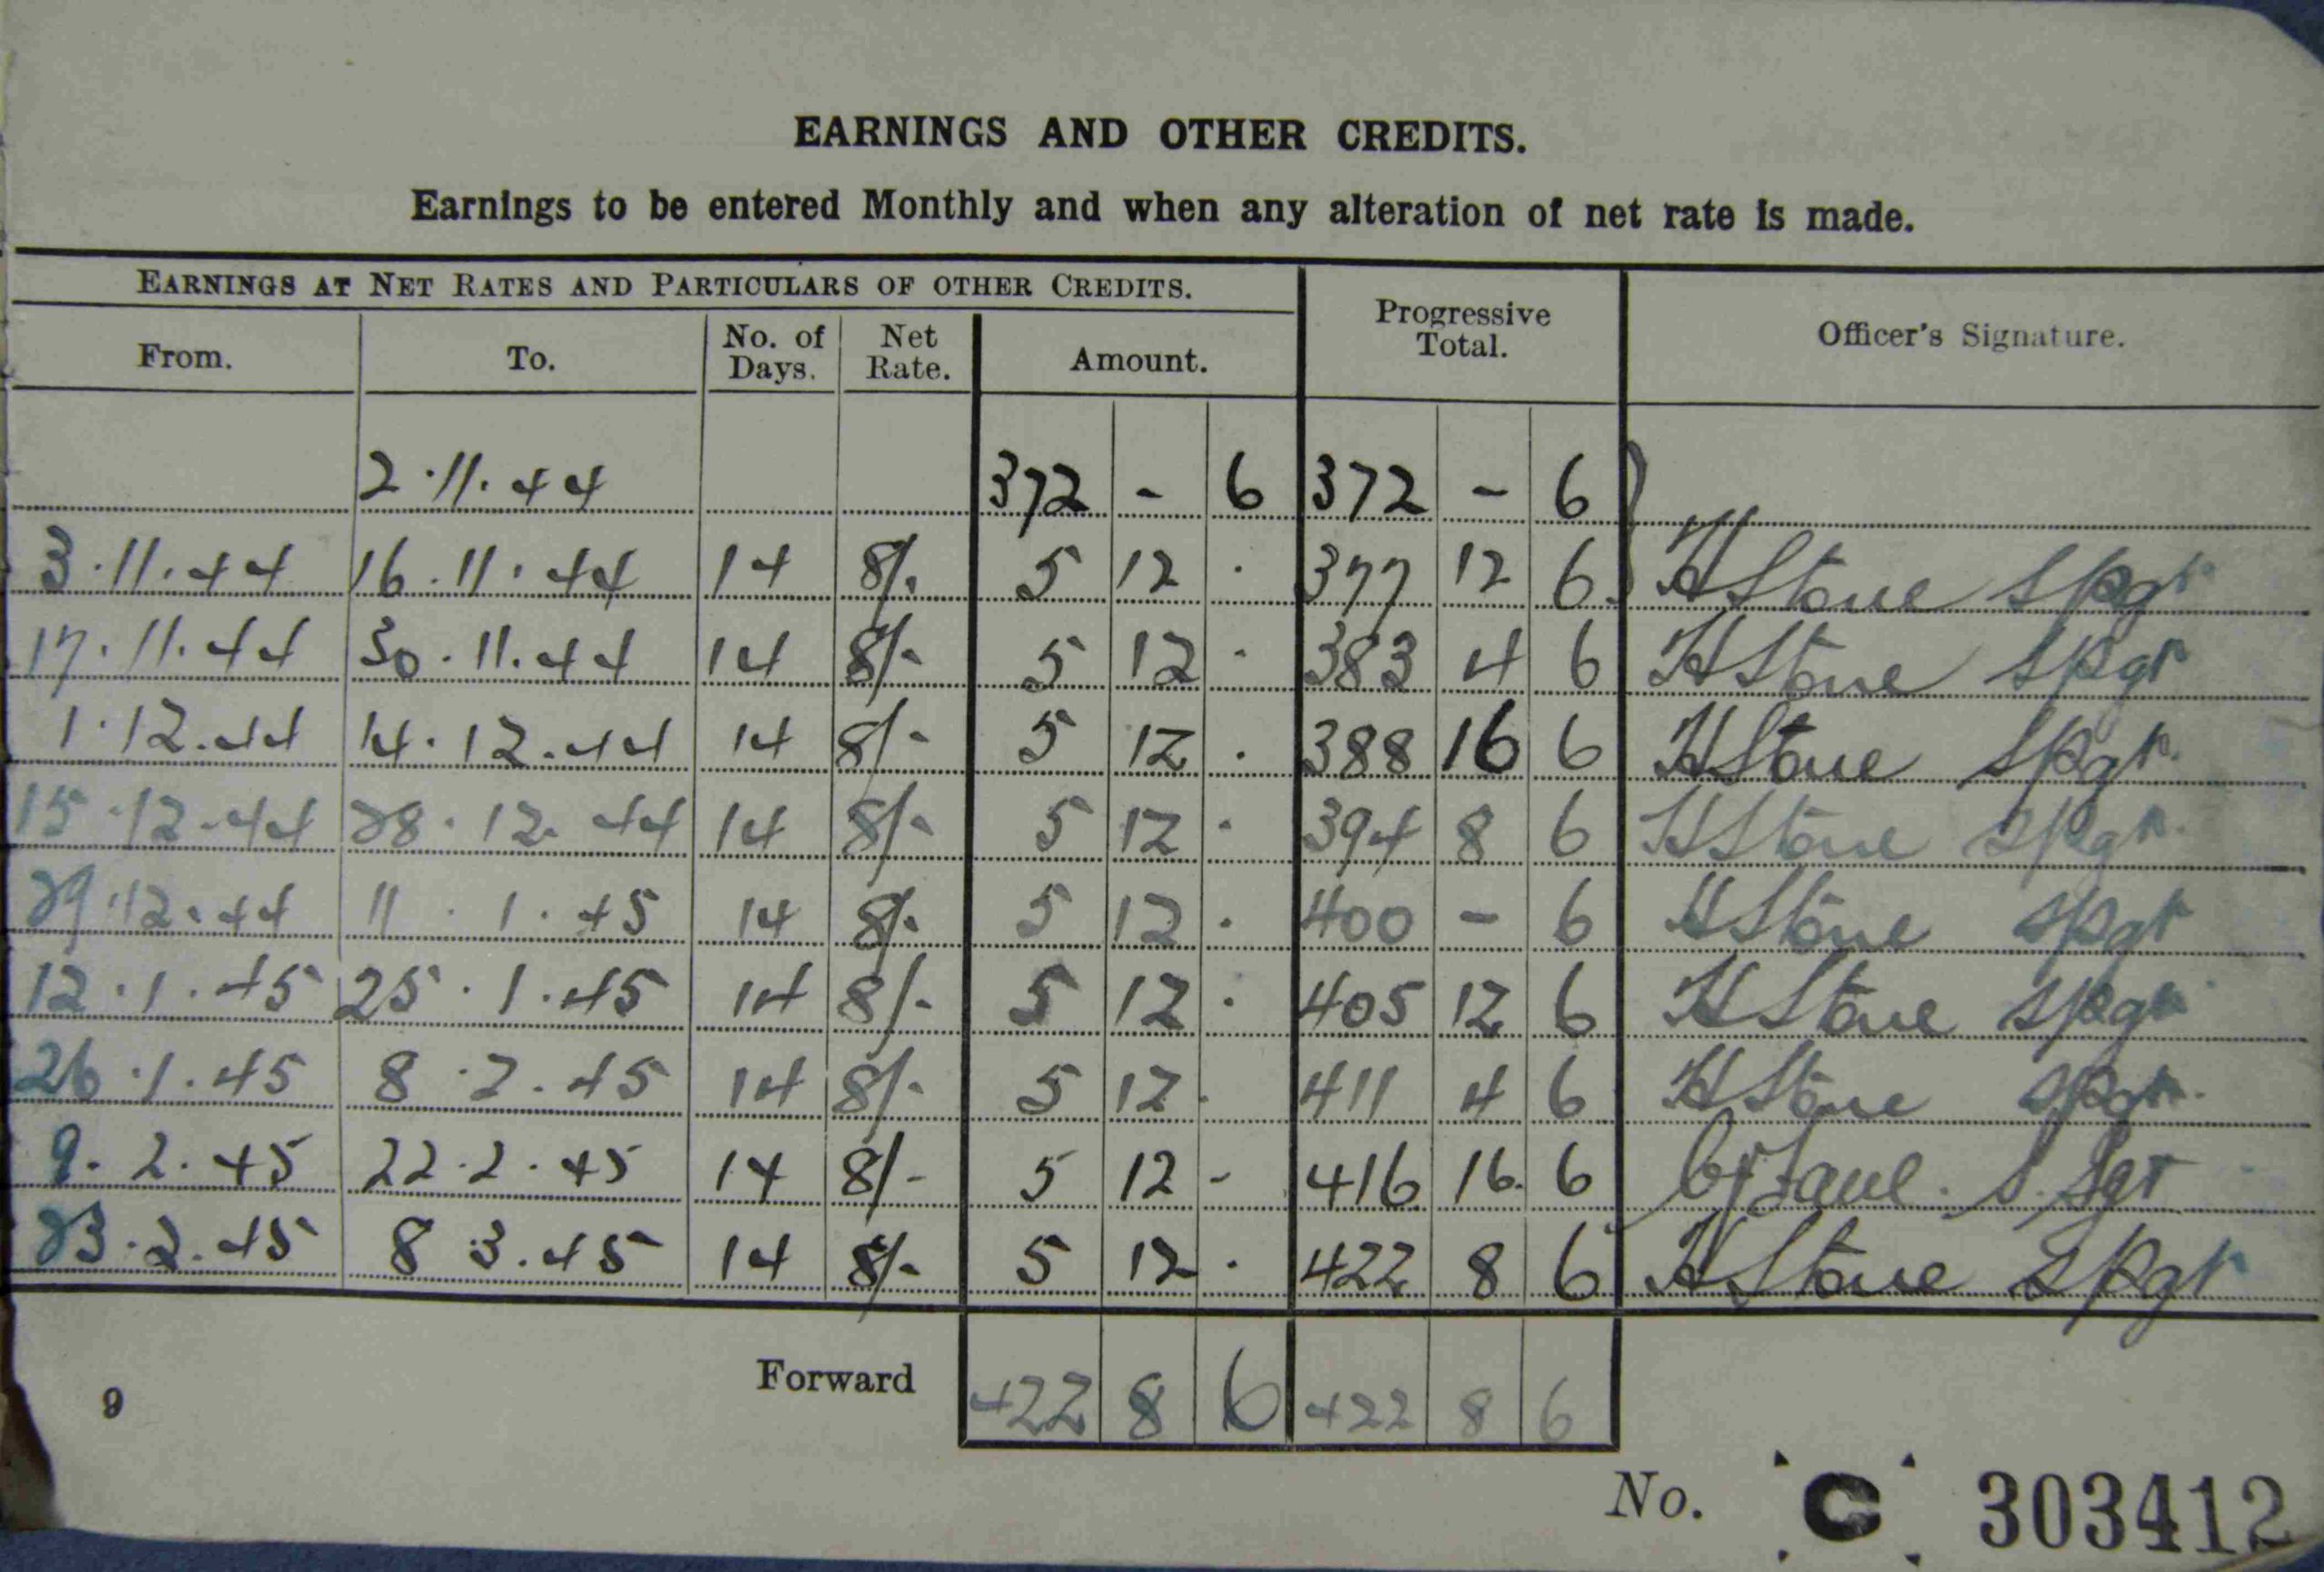 EARNINGS AND OTHER CREDITS.
Earnings to be entered Monthly and when any alteration of net rate is made.
EARNINGS AT NET RATES AND PARTICULARS OF OTHER CREDITS. Progressive Total. Officer's Signature.
From. To. No. of Days. Net Rate. Amount.
2.11.44 372 - 6 372 - 6
3.11.44 16.11.44 14 8/- 5 12 . 377 12 6 H Stone
17.11.44 30.11.44 14 8/- 5 12 - 383 4 6 H Stone
1.12.44 14.12.44 14 8/- 5 12 . 388 16 6 H Stone
15.12.44 28.12.44 14 8/- 5 12 . 394 8 6 H Stone
29.12.44 11.1.45 14 8/- 5 12 . 400 - 6 H Stone
12.1.45 25.1.45 14 8/- 5 12 . 405 12 6 H Stone
26.1.45 8.2.45 14 8/- 5 12 . 411 4 6 H Stone
9.2.45 22.2.45 14 8/- 5 12 - 416 16. 6 S. Sgt
23.2.45 8 3.45 14 8/- 5 12 . 422 8 6 H Stone
Forward 422 8 6 422 8 6
9
No. C 303412